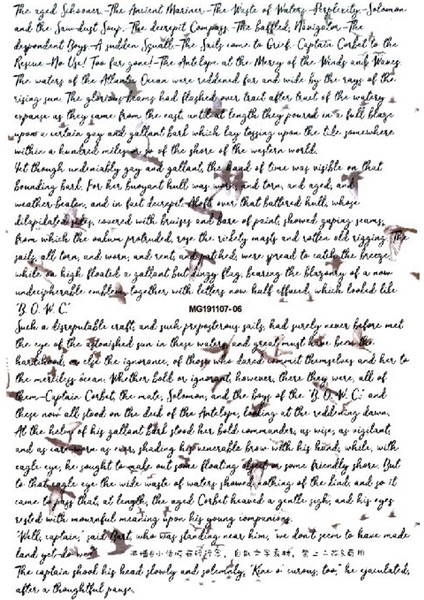 The aged Schooner.-The Ancient Mariner.-The Waste of Waters.-Perplexity.-Solomon
and the Sawdust Soup.-The decrepit Compass.-The baffled Navigator.-The
despondent Boys.-A sudden Squall.-The Sails come to Grief.-Captain Corbet to the
Rescue.-No Use! Too far gone!-The Antelope at the Mercy of the Winds and Waves.
The waters of the Atlantic Ocean were reddened far and wide by the rays of the
rising sun. The glorious beams had flashed over tract after tract of the watery
expanse as they came from the east, until at length they poured in a full blaze
upon a certain gay and gallant bark which lay tossing upon the tide somewhere
within a hundred miles or so of the shore of the western world.
Yet though undeniably gay and gallant, the hand of time was visible on that
bounding bark. For her buoyant hull was worn and torn, and aged, and
weather-beaten, and in fact decrepit. Aloft over that battered hull, whose
dilapidated sides, covered with bruises and bare of paint, showed gaping seams,
from which the oakum protruded, rose the rickety masts and rotten old rigging. The
sails, all torn, and worn, and rent, and patched, were spread to catch the breeze,
while on high floated a gallant but dingy flag, bearing the blazonry of a now
undecipherable emblem, together with letters now half effaced, which looked like
"B. O. W. C."
MG191107-06
Such a disreputable craft, and such preposterous sails, had surely never before met
the eye of the astonished sun in these waters, and great must have been the
hardihood, or else the ignorance, of those who dared commit themselves and her to
the merciless ocean. Whether bold or ignorant, however, there they were, all of
them-Captain Corbet the mate, Solomon, and the boys of the "B. O. W. C.;" and
these now all stood on the deck of the Antelope, looking at the reddening dawn.
At the helm of his gallant bark stood her bold commander, as wise, as vigilant,
and as care-worn as ever, shading his venerable brow with his hand, while, with
eagle eye, he sought to make out some floating object or some friendly shore. But
to that eagle eye the wide waste of waters showed nothing of the kind; and so it
came to pass that, at length, the aged Corbet heaved a gentle sigh, and his eyes
rested with mournful meaning upon his young companions.
"Wall, captain," said Bart, who was standing near him, "we don't seem to have made
land yet-do we?"
The captain shook his head slowly and solemnly, "Kine o' curous, too," he ejaculated,
after a thoughtful pause.